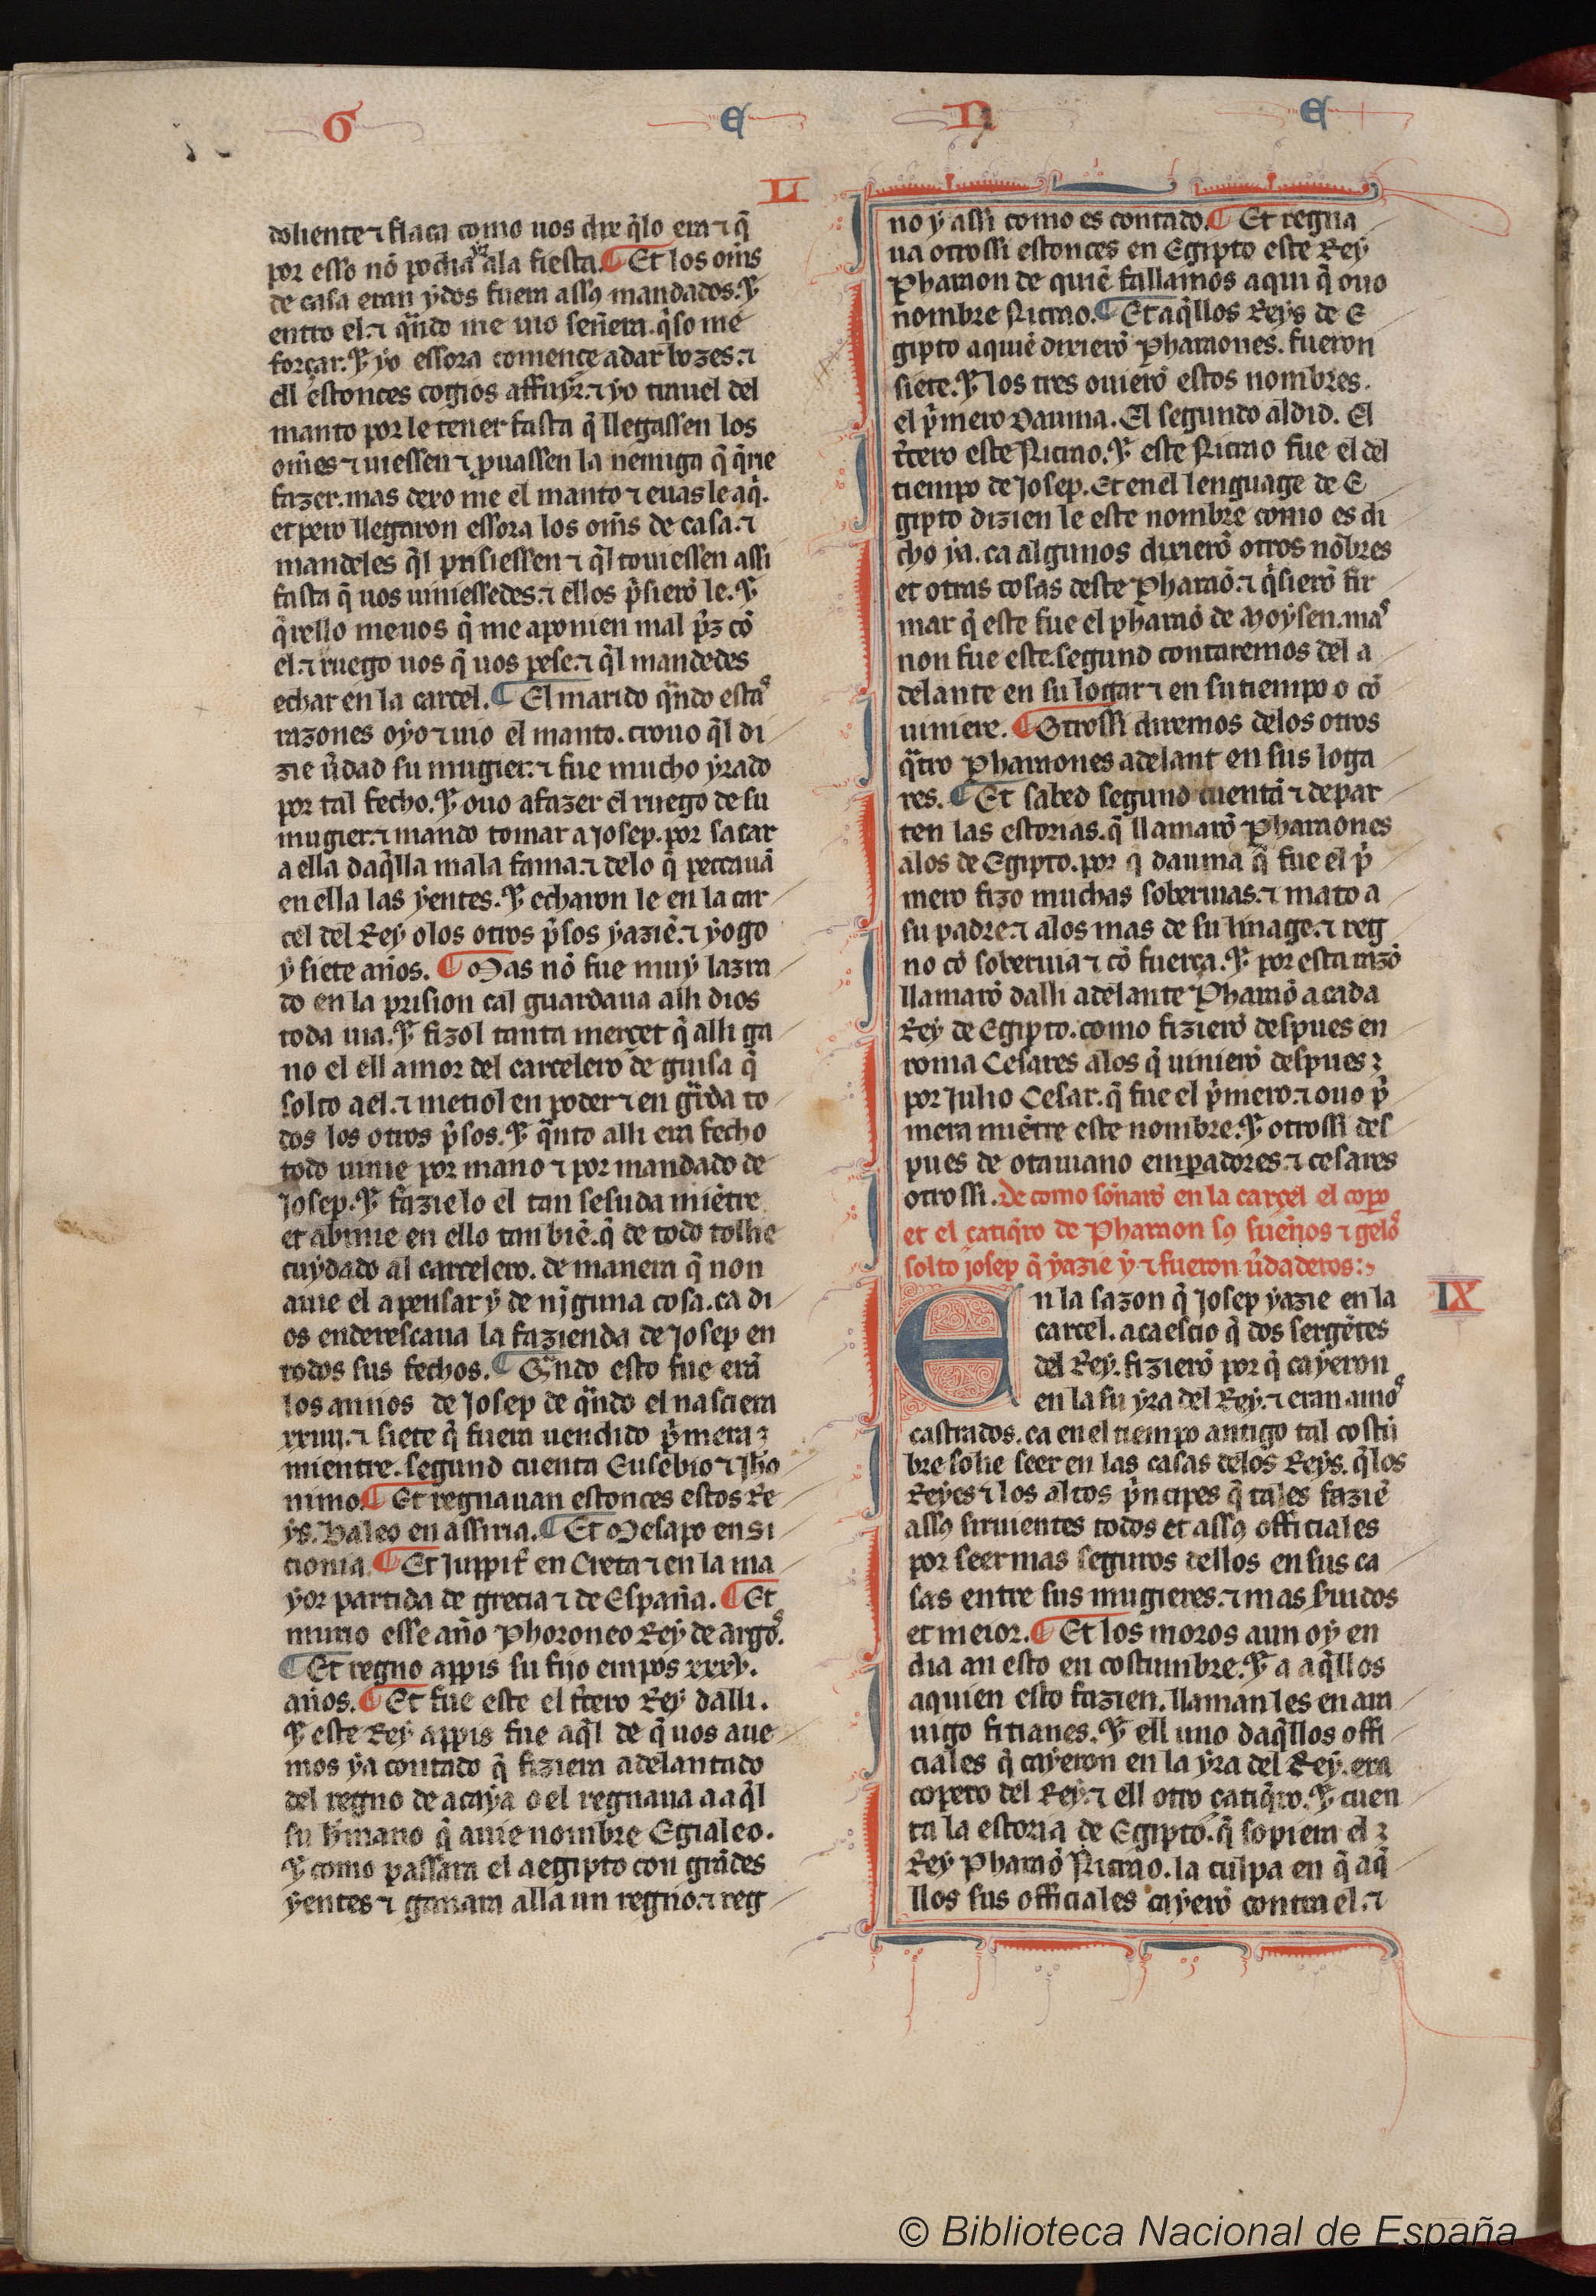 G E N E
LI
doliente ⁊ flaca como uos dixe q̃lo era ⁊ q̃
por esso nõ podia yr ala fiesta. ¶ Et los om̃s
de casa eran ydos fuera assꝯ mandados. Ꞵ
entro el. ⁊ q̃ndo me uio señera. q̃so me
forçar. Ꞵ yo essora comence a dar bozes. ⁊
ell estonces cogios affuyr. ⁊ yo trauel del
manto por le tener fasta q̃ llegassen los
om̃es ⁊ uiessen ⁊ ꝓuassen la nemiga q̃ q̃rie
fazer. mas dexo me el manto ⁊ euas le aq̃.
et pero llegaron essora los om̃s de casa. ⁊
mandeles q̃l prisiessen ⁊ q̃l touiessen assi
fasta q̃ uos uiniessedes. ⁊ ellos p̃sierõ le. Ꞵ
q̃rello me uos q̃ me aponien mal p̃z cõ
el. ⁊ ruego uos q̃ uos pese. ⁊ q̃l mandedes
echar en la carcel. ¶ El marido q̃ndo estaˢ
razones oyo ⁊ uio el manto. crouo q̃l di
zie ũdad su mugier. ⁊ fue mucho yrado
por tal fecho. Ꞵ ouo a fazer el ruego de su
mugier. ⁊ mando tomar a Josep. por sacar
a ella daq̃lla mala fama. ⁊ delo q̃ peccauã
en ella las yentes. Ꞵ echaron le en la car
cel del Rey o los otros p̃sos yaziẽ. ⁊ yogo
y siete años. ¶ Mas nõ fue muy lazra
do en la prision cal guardaua alli dios
toda uia. Ꞵ fizol tanta merçet q̃ alli ga
no el ell amor del carcelero de guisa q̃
solto a el. ⁊ metiol en poder ⁊ en g̃ida to
dos los otros p̃sos. Ꞵ q̃nto alli era fecho
todo uinie por mano ⁊ por mandado de
Josep. Ꞵ fazie lo el tan sesuda miẽtre
et abinie en ello tan biẽ. q̃ de todo tollie
cuydado al carcelero. de manera q̃ non
auie el a pensar y de nj̃guna cosa. ca di
os enderesçaua la fazienda de Josep en
todos sus fechos. ¶ Q̃ndo esto fue erã
los annos de Josep de q̃ndo el nasciera
xxiiij. ⁊ siete q̃ fuera uendido p̃mera
mientre. segund cuenta Eusebio ⁊ Jħo
nimo. ¶ Et regnauan estonces estos Re
ys. Baleo en assiria. ¶ Et Mesapo en Si
cionia. ¶ Et Juppit̃ en Creta ⁊ en la ma
yor partida de grecia ⁊ de España. ¶ Et
murio esse año Phoroneo Rey de argoˢ.
¶ Et regno appis su fijo empos xxxv.
años. ¶ Et fue este el t̃cero Rey dalli.
Ꞵ este Rey appis fue aq̃l de q̃ uos aue
mos ya contado q̃ fiziera adelantado
del regno de acaya o el regnaua a aq̃l
su h̃mano q̃ auie nombre Egialeo.
Ꞵ como passara el a egipto con grãdes
yentes ⁊ ganara alla un regno. ⁊ reg
no y assi como es contado. ¶ Et regna
ua otrossi estonces en Egipto este Rey
Pharaon de quiẽ fallamos aqui q̃ ouo
nombre Nicrao. ¶ Et aq̃llos Reys de E
gipto a quiẽ dixierõ Pharaones. fueron
siete. Ꞵ los tres ouierõ estos nombres.
el p̃mero Dauma. El segundo aldid. El
t̃cero este Nicrao. Ꞵ este Nicrao fue el del
tiempo de Josep. Et en el lenguage de E
gipto dizien le este nombre como es di
cho ya. ca algunos dixierõ otros nõbres
et otras cosas deste Pharaõ. ⁊ q̃sierõ fir
mar q̃ este fue el pharaõ de Moysen. maˢ
non fue este. segund contaremos del a
delante en su logar ⁊ en su tiempo o cõ
uiniere. ¶ Otrossi diremos delos otros
q̃tro Pharaones adelant en sus loga
res. ¶ Et sabed segund cuentã ⁊ depar
ten las estorias. q̃ llamarõ Pharaones
alos de Egipto. por q̃ dauma q̃ fue el p̃
mero fizo muchas soberuias. ⁊ mato a
su padre. ⁊ alos mas de su linage. ⁊ reg
no cõ soberuia ⁊ cõ fuerça. Ꞵ por esta razõ
llamarõ dalli adelante Pharaõ a cada
Rey de Egipto. como fizierõ despues en
roma Cesares alos q̃ uinierõ despues
por Julio Cesar. q̃ fue el p̃mero. ⁊ ouo p̃
mera miẽtre este nombre. Ꞵ otrossi des
pues de otauiano emꝑadores. ⁊ cesares
otrossi. De como soñarõ en la carçel el copo
et el çatiq̃ro de Pharaon sꝯ sueños ⁊ geloˢ
solto josep q̃ yazie y. ⁊ fueron ũdaderos:
IX
En la sazon q̃ Josep yazie en la
carcel. acaescio q̃ dos sergẽtes
del Rey. fizierõ por q̃ cayeron
en la su yra del Rey. ⁊ eran amoˢ
castrados. ca en el tiempo antigo tal costũ
bre solie seer en las casas delos Reys. q̃ los
Reyes ⁊ los altos p̃ncipes q̃ tales faziẽ
assꝯ siruientes todos et assꝯ officiales
por seer mas seguros dellos en sus ca
sas entre sus mugieres. ⁊ mas s̃uidos
et meior. ¶ Et los moros aun oy en
dia an esto en costumbre. Ꞵ a aq̃llos
a quien esto fazien. llaman les en ara
uigo fitianes. Ꞵ ell uno daq̃llos offi
ciales q̃ cayeron en la yra del Rey. era
copero del Rey. ⁊ ell otro çatiq̃ro. Ꞵ cuen
ta la estoria de Egipto. q̃ sopiera el
Rey Pharaõ Nicrao. la culpa en q̃ aq̃
llos sus officiales cayerõ contra el. ⁊
© Biblioteca Nacional de España